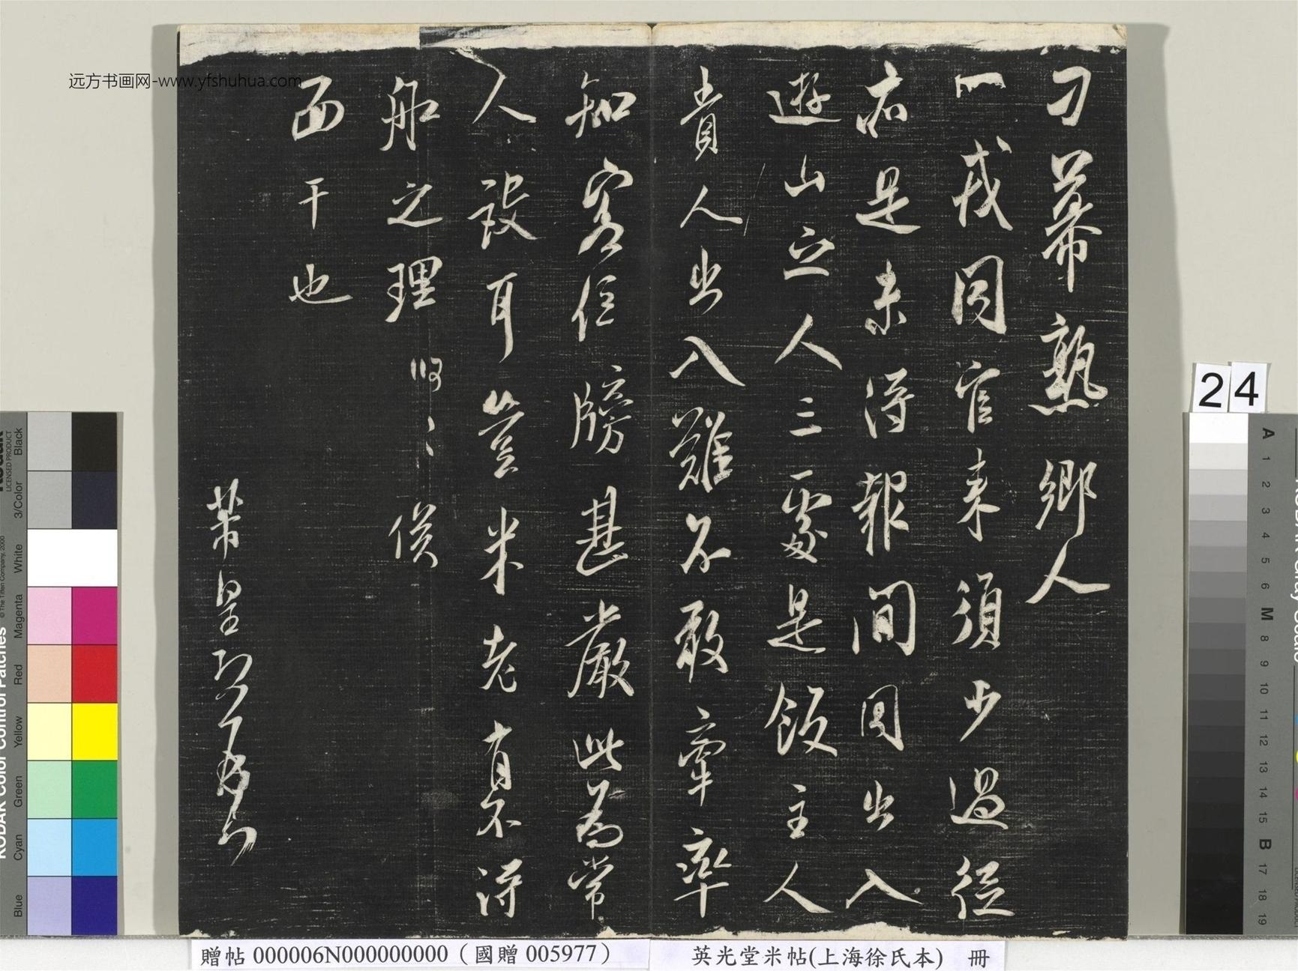 刁幕熟鄉人
一戎同官来須少過從
亦是未得報間因出入
遊山三人三處是飯主人
貴人出入難不敢牽率
知客位牓甚嚴此為常
人設耳豈米老有不得
船之理
面干也
芾皇
远方书画网-www.yfshuhua.com
24
贈帖 000006N000000000（國贈 005977）
英光堂米帖(上海徐氏本) 冊
KODAK Color Control Patches
Blue Cyan Green Yellow Red Magenta White 3/Color Black
A 1 2 3 4 5 6 M 8 9 10 11 12 13 14 15 B 17 18 19